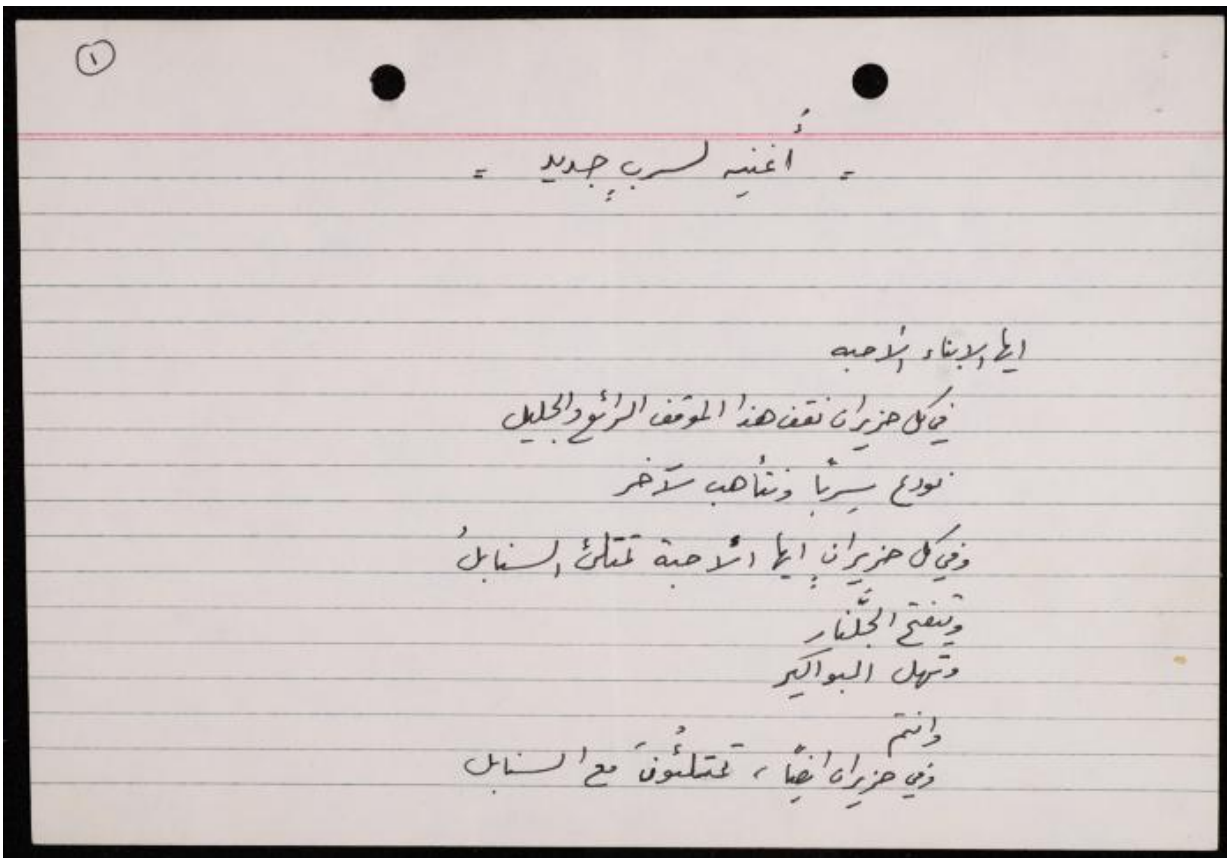 ١
= أُغنيه لسربٍ جديد =
ايها الابناء الأحبه
في كل حزيران نقف هذا الموقف الرائع والجليل
نودع سربًا ونتأهب لآخر
وفي كل حزيرانٍ ايها الأحبة تمتلئ السنابلُ
وتتفتح الجلَّنار
وتهل البواكير
وانتم
وفي حزيران ايضًا ، تمتلئُونَ مع السنابل